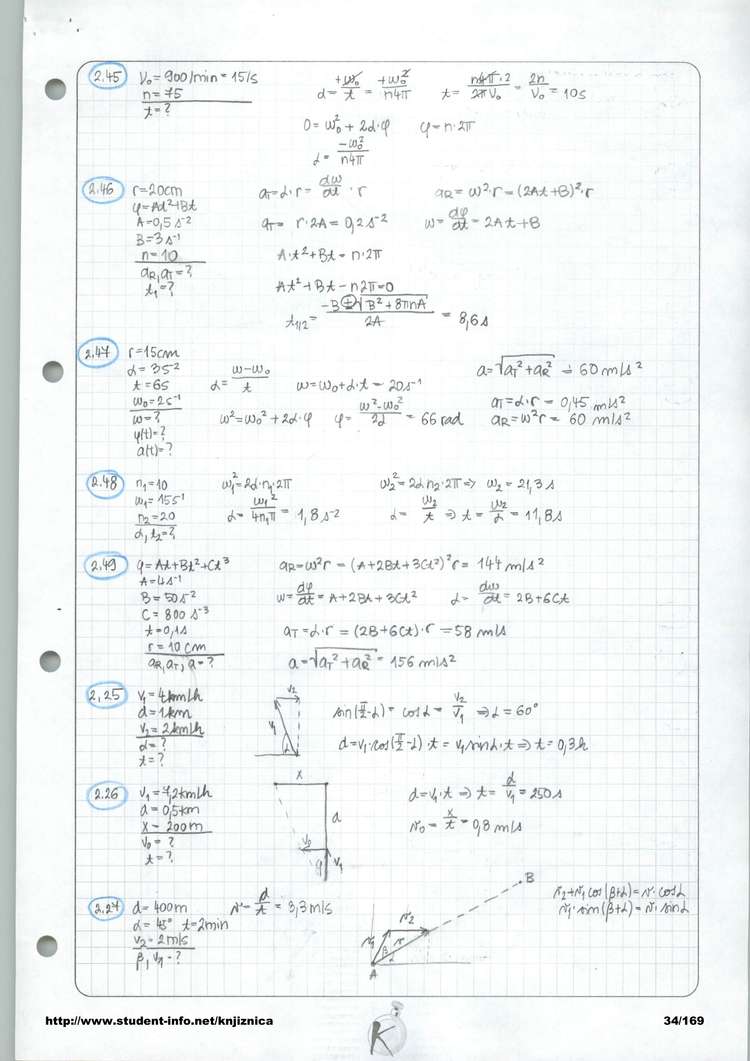 2.45 V₀ = 900/min = 15/s
n = 75
t = ?
α = +ω₀/t = +ω₀²/n4π
t = n4π·2/2πV₀ = 2n/V₀ = 10s
0 = ω₀² + 2α·φ φ = n·2π
α = -ω₀²/n4π
2.46 r = 20cm
φ = At² + Bt
A = 0,5 s⁻²
B = 3 s⁻¹
n = 10
aR, aT = ?
t₁ = ?
aT = α·r = dω/dt · r
aR = ω²·r = (2At+B)²·r
aT = r·2A = 0,2 s⁻² ω = dφ/dt = 2At + B
A·t² + Bt = n·2π
At² + Bt - n2π = 0
t₁/₂ = -B ± √B² + 8πnA / 2A = 8,6 s
2.47 r = 15cm
α = 3s²
t = 6s
ω₀ = 2s⁻¹
ω = ?
φ(t) = ?
a(t) = ?
α = ω-ω₀/t ω = ω₀ + α·t = 20 s⁻¹
ω² = ω₀² + 2α·φ φ = ω²-ω₀²/2α = 66 rad
a = √aT² + aR² = 60 m/s²
aT = α·r = 0,45 m/s²
aR = ω²r = 60 m/s²
2.48 n₁ = 10
ω₁ = 15s¹
n₂ = 20
α, t₂ = ?
ω₁² = 2α·n₁·2π
α = ω₁²/4n₁π = 1,8 s⁻²
ω₂² = 2α n₂·2π ⇒ ω₂ = 21,3 s
α = ω₂/t ⇒ t = ω₂/α = 11,8s
2.49 φ = At + Bt² + Ct³
A = 4s⁻¹
B = 50s²
C = 800 s⁻³
t = 0,1s
r = 10 cm
aR, aT, a = ?
aR = ω²r = (A+2Bt+3Ct²)²r = 144 m/s²
ω = dφ/dt = A + 2Bt + 3Ct² α = dω/dt = 2B + 6Ct
aT = α·r = (2B+6Ct)·r = 58 m/s
a = √aT² + aR² = 156 m/s²
2.25 v₁ = 4km/h
d = 1km
v₂ = 2km/h
α = ?
t = ?
v₂
v₁
α
sin(π/2-α) = cosα = v₂/v₁ ⇒ α = 60°
d = v₁·cos(π/2-α)·t = v₁sinα·t ⇒ t = 0,3h
2.26 v₁ = 7,2km/h
d = 0,5km
x = 200m
v₀ = ?
t = ?
x
d
v₀
v₁
d = v₁·t ⇒ t = d/v₁ = 250s
v₀ = x/t = 0,8 m/s
2.27 d = 400m
α = 45° t = 2min
v₂ = 2m/s
β, v₁ = ?
v = d/t = 3,3m/s
B
v₂
v₁
v
β
α
A
v₂ + v₁ cos(β+α) = v·cosα
v₁·sin(β+α) = v·sinα
http://www.student-info.net/knjiznica
34/169
K